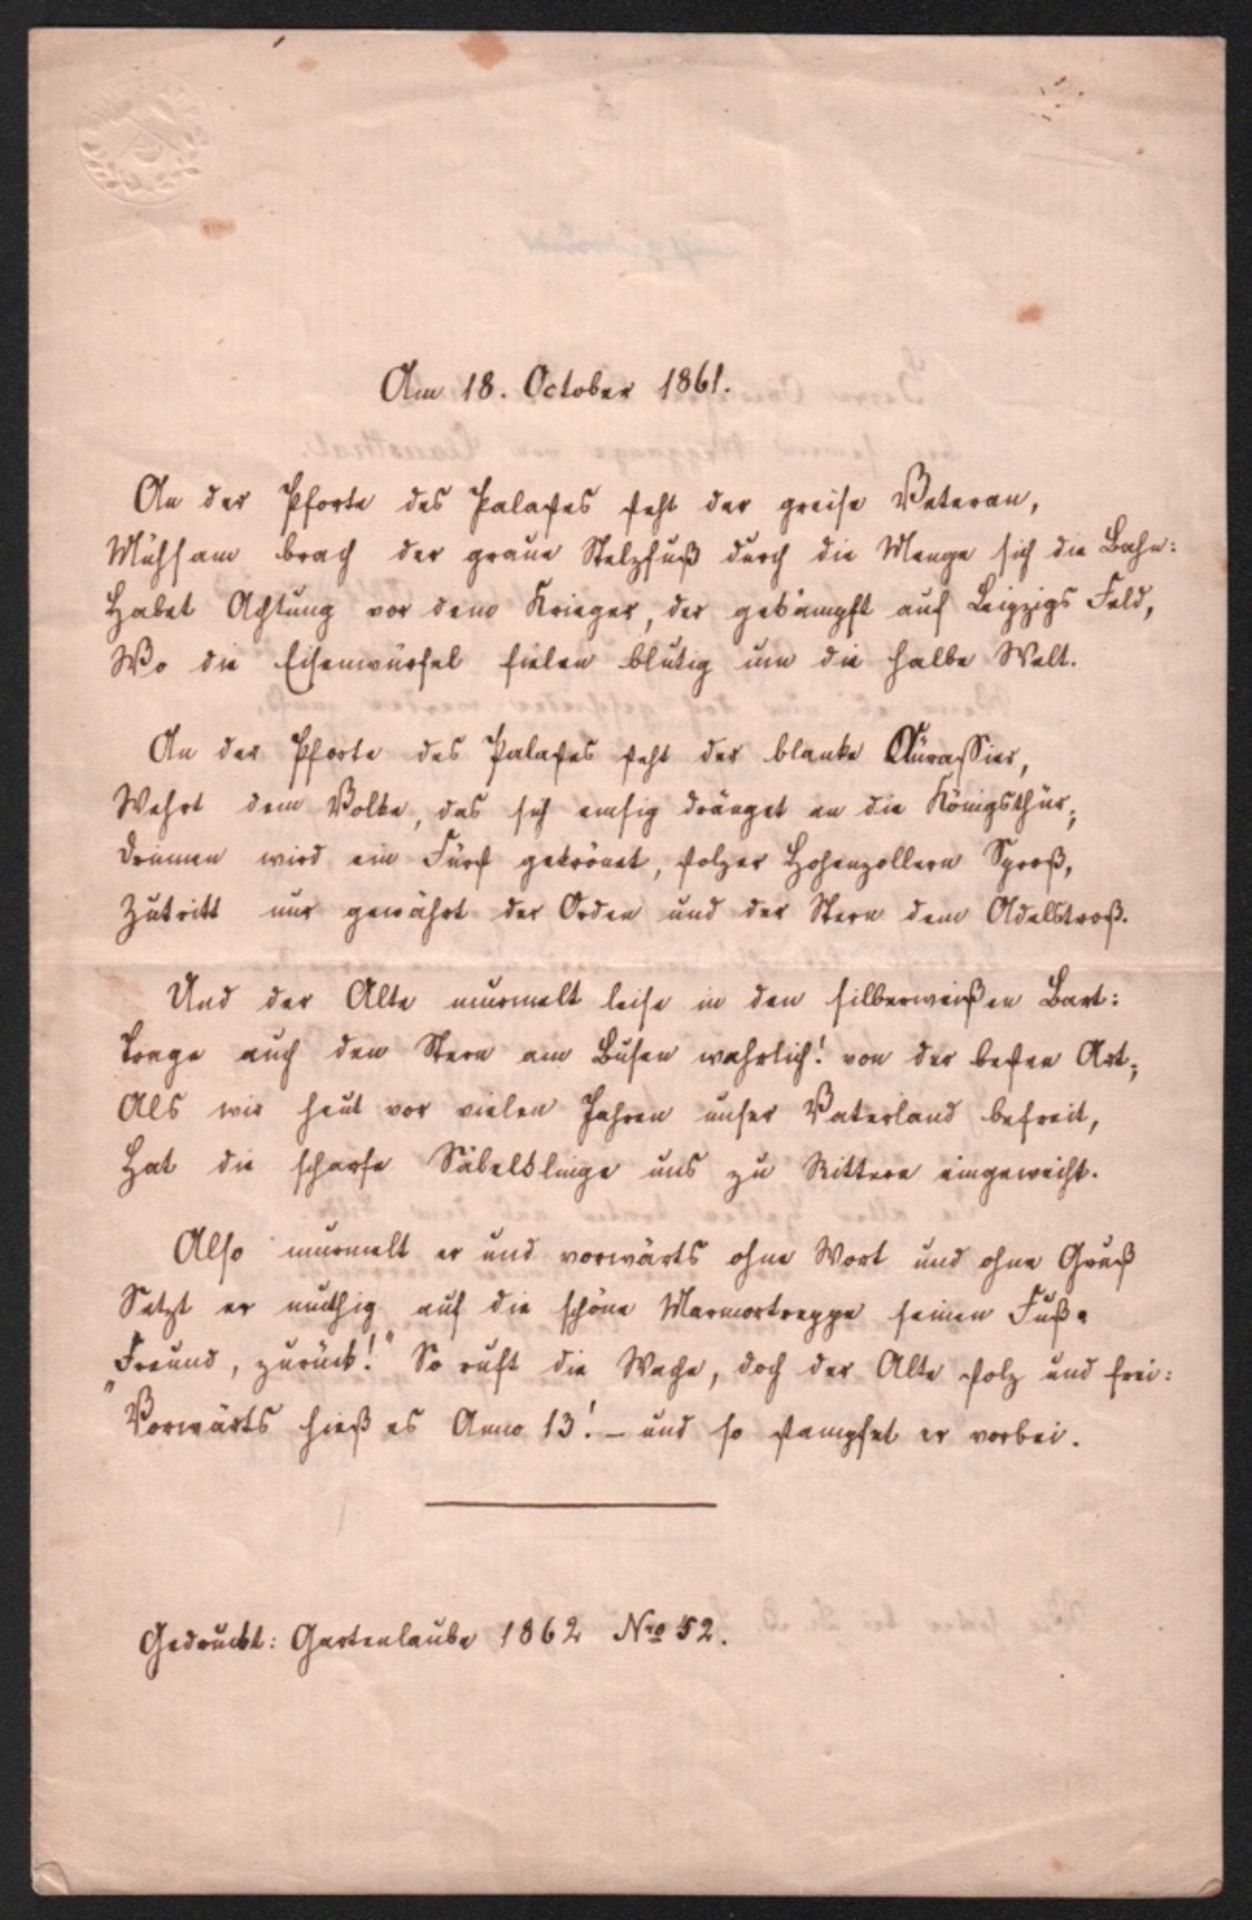 Am 18. October 1861.
An der Pforte des Palastes steht der greise Veteran,
Mühsam brach der graue Stelzfuß durch die Menge sich die Bahn:
Habet Achtung vor dem Krieger, der gekämpft auf Leipzigs Feld,
Wo die Eisenwürfel fielen blutig um die halbe Welt.
An der Pforte des Palastes steht der blanke Cürassier,
Wehrt dem Volke, das sich emsig dränget an die Königsthür;
Drinnen wird ein Fürst gekrönet, stolzer Hohenzollern Sproß,
Zutritt nur gewährt der Orden und der Stern dem Adelstroß.
Und der Alte murmelt leise in den silberweißen Bart:
Trage auch den Stern am Busen wahrlich! von der besten Art;
Als wir heut vor vielen Jahren unser Vaterland befreit,
Hat die scharfe Säbelklinge uns zu Rittern eingeweiht.
Also murmelt er und vorwärts ohne Wort und ohne Gruß
Setzt er muthig auf die schöne Marmortreppe seinen Fuß.
"Freund, zurück!" So ruft die Wache, doch der Alte stolz und frei:
"Vorwärts hieß es Anno 13! – und so stampfet er vorbei.
Gedruckt: Gartenlaube 1862 Nro 52.